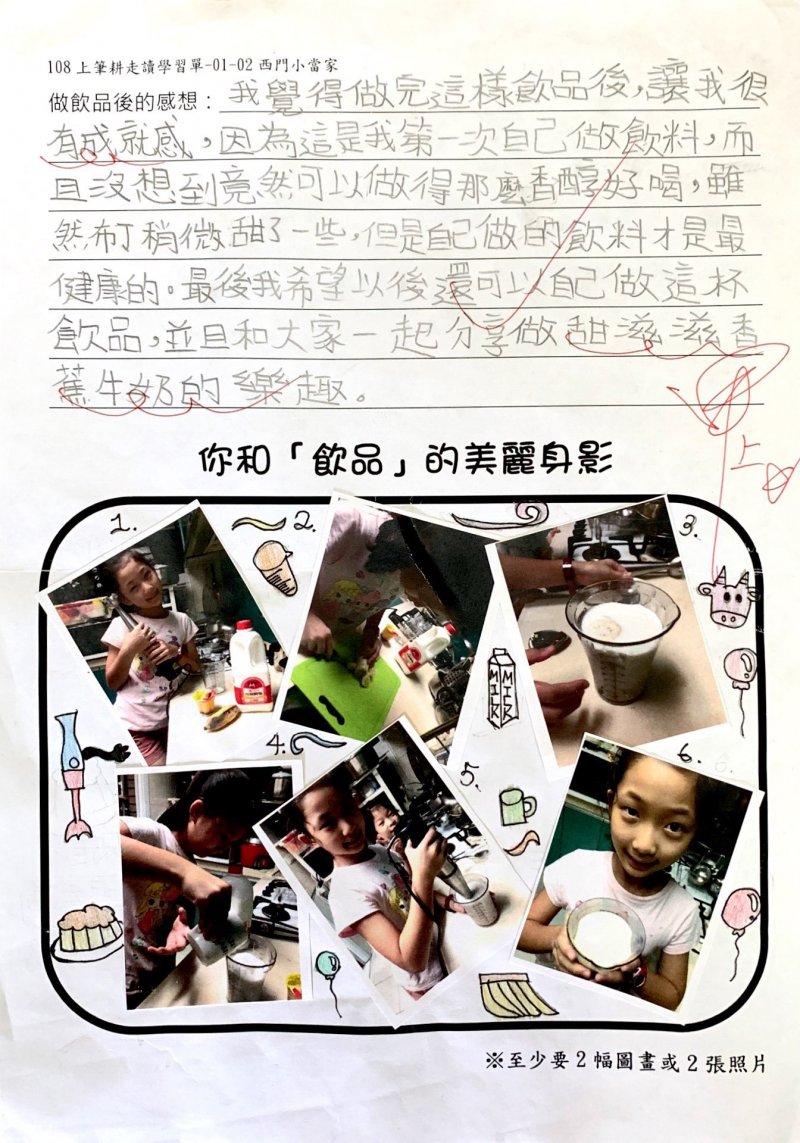 108上筆耕走讀學習單-01-02西門小當家
做飲品後的感想：我覺得做完這樣飲品後，讓我很
有成就感，因為這是我第一次自己做飲料，而
且沒想到竟然可以做得那麼香醇好喝，雖
然布丁稍微甜了一些，但是自己做的飲料才是最
健康的。最後我希望以後還可以自己做這杯
飲品，並且和大家一起分享做甜滋滋香
蕉牛奶的樂趣。
上
你和「飲品」的美麗身影
1.
2.
3.
MILK
MILK
4.
5.
6.
※至少要2幅圖畫或2張照片